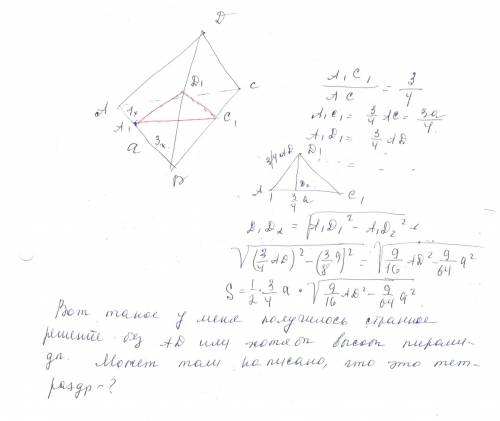 D
D₁
A
1x
C
A₁
C₁
a
3x
B
A₁C₁ / AC = 3/4
A₁C₁ = 3/4 AC = 3a/4
A₁D₁ = 3/4 AD
3/4 AD D₁
D₂
A₁ 3/4 a C₁
D₁D₂ = √(A₁D₁² - A₁D₂²) =
√((3/4 AD)² - (3/8 a)²) = √(9/16 AD² - 9/64 a²)
S = 1/2 · 3/4 a · √(9/16 AD² - 9/64 a²)
Вот такое у меня получилось странное
решение без AD или хотябы высоты пирами-
ды. Может там написано, что это тет-
раэдр-?